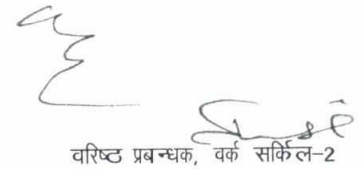 वरिष्ट प्रबन्धक, वर्क सर्किल-2